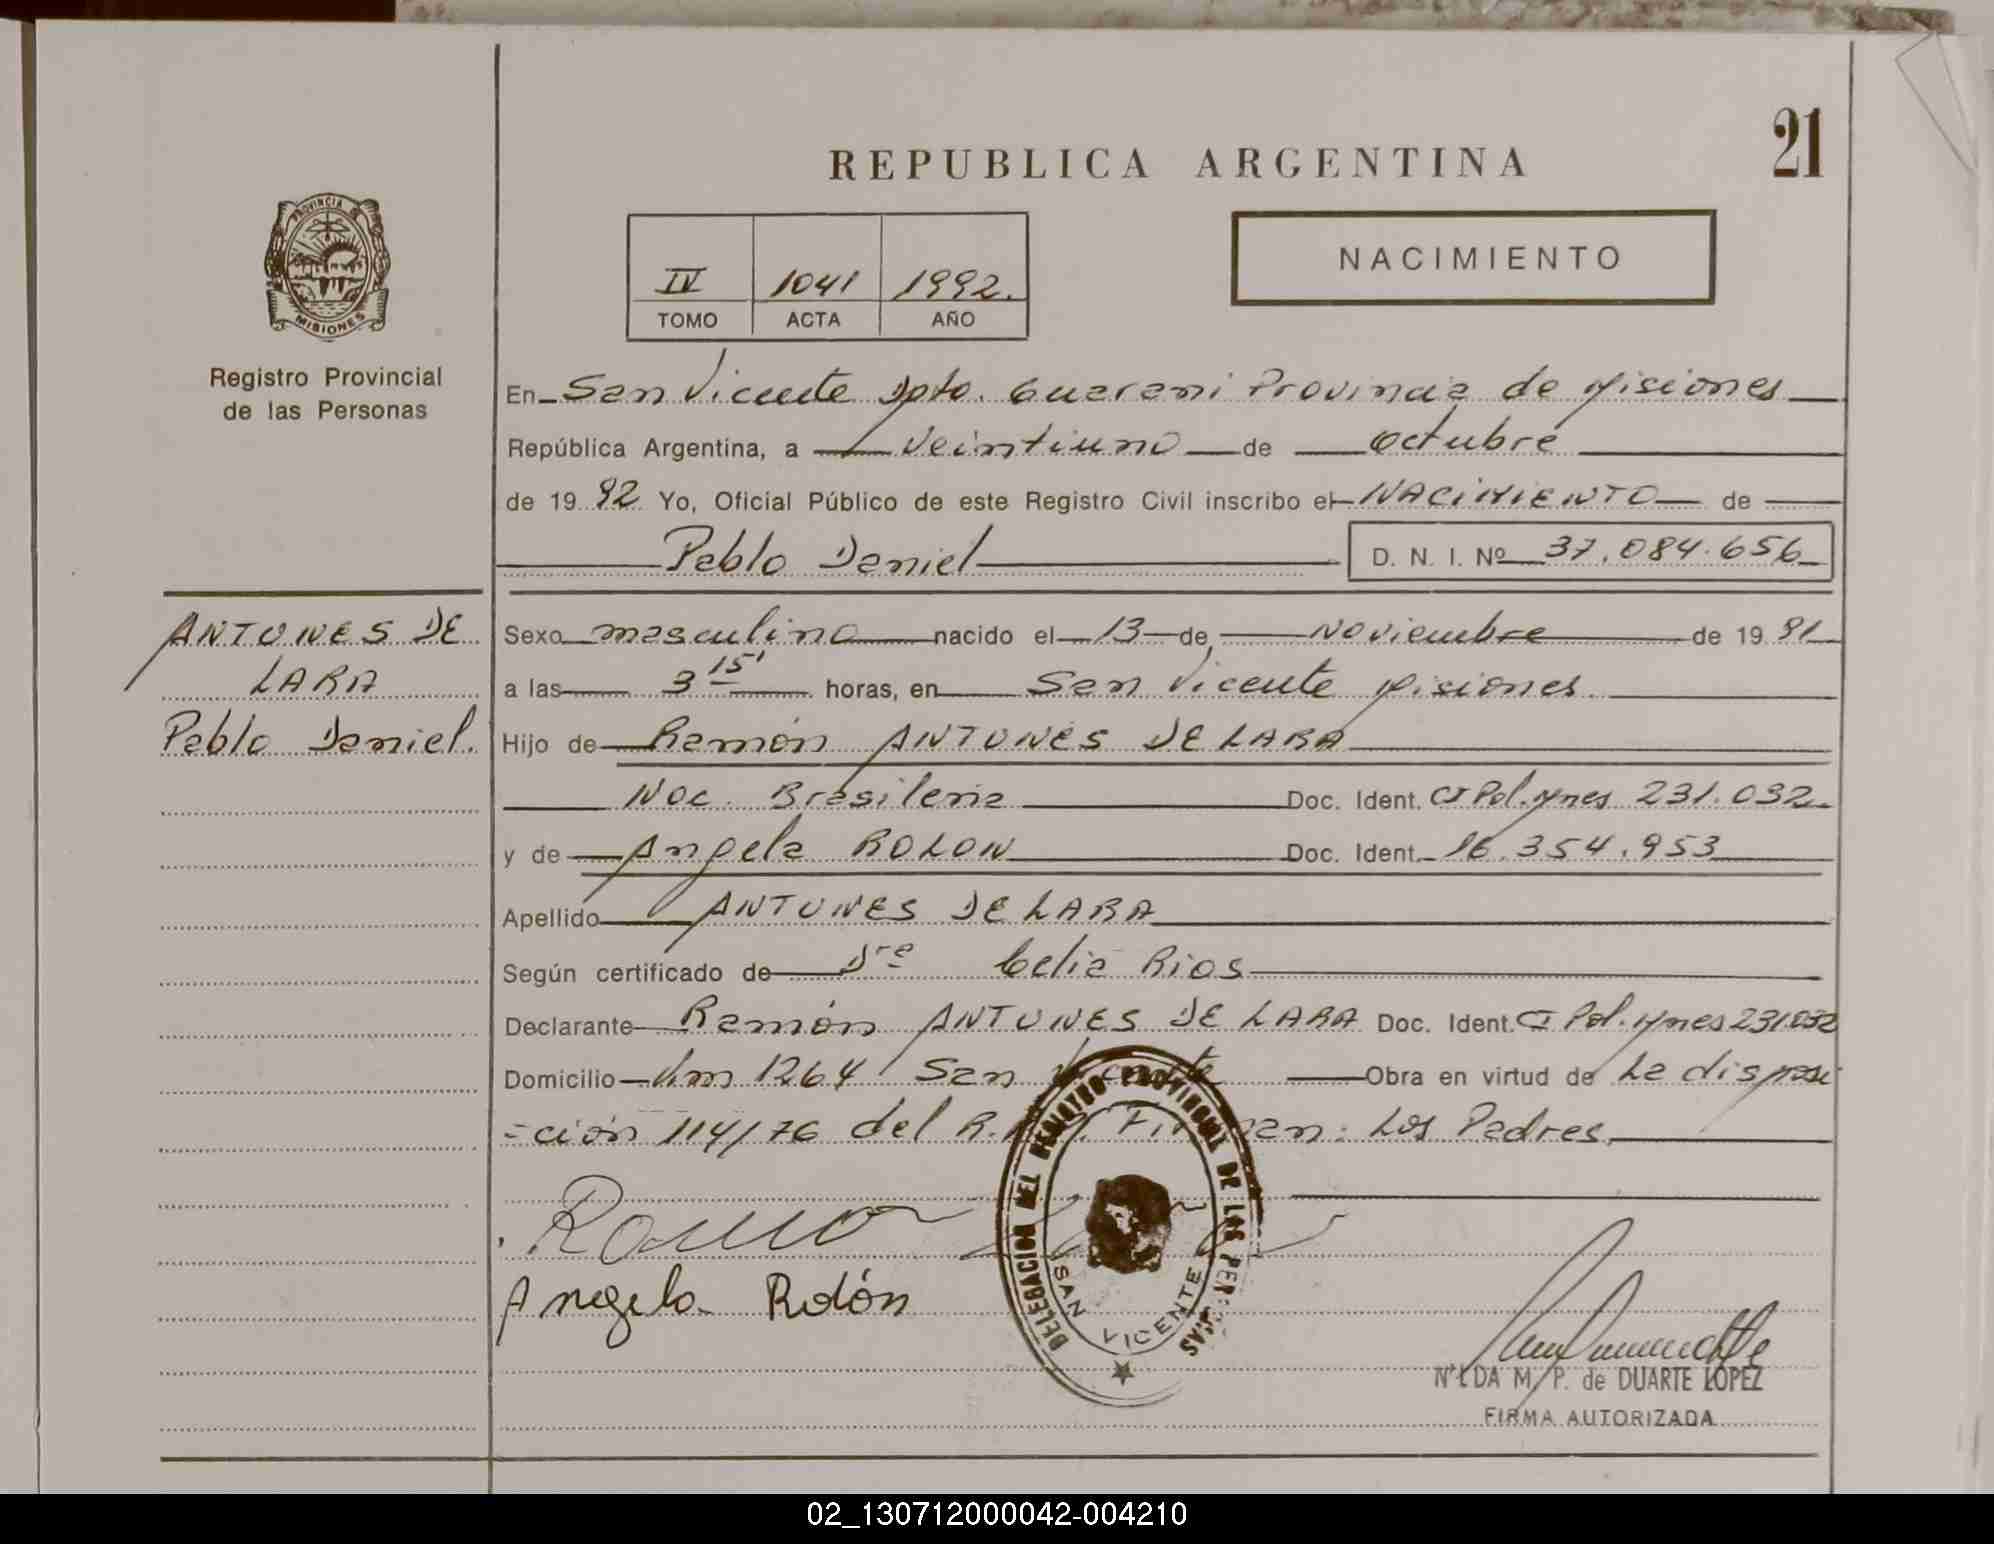 21
REPUBLICA ARGENTINA
NACIMIENTO
IV 1041 1992.
TOMO ACTA AÑO
PROVINCIA DE
MISIONES
Registro Provincial
de las Personas
En San Vicente Dpto. Guarani Provincia de Misiones
República Argentina, a veintiuno de octubre
de 19 92 Yo, Oficial Público de este Registro Civil inscribo el NACIMIENTO de
Pablo Daniel D. N. I. Nº 37.084.656
ANTUNES DE
LARA
Pablo Daniel.
Sexo masculino nacido el 13 de Noviembre de 19 91
a las 3 15' horas, en San Vicente Misiones
Hijo de Ramón ANTUNES DE LARA
Nac. Brasilera Doc. Ident. CI Pol. Mnes 231.032
y de Angela ROLON Doc. Ident. 16.354.953
Apellido ANTUNES DE LARA
Según certificado de Dra Celia Rios
Declarante Ramón ANTUNES DE LARA Doc. Ident. CI Pol. Mnes 231.032
Domicilio Km 1264 San Vicente Obra en virtud de La disposi
-ción 114/76 del Firman: Los Padres
Angela Rolón
DELEGACION DEL REGISTRO PROVINCIAL DE LAS PERSONAS
SAN VICENTE
NILDA M. P. de DUARTE LOPEZ
FIRMA AUTORIZADA
02_130712000042-004210